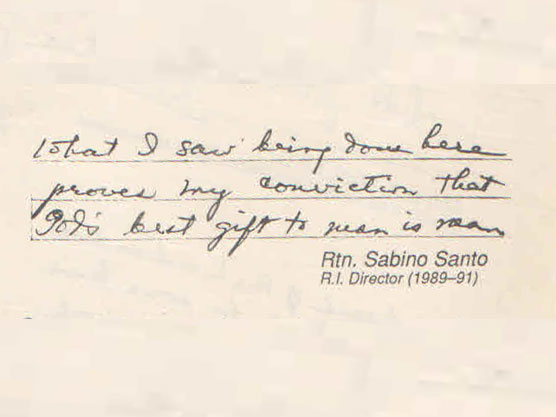 What I saw being done here
proves my conviction that
God's best gift to man is man
Rtn. Sabino Santo
R.I. Director (1989–91)